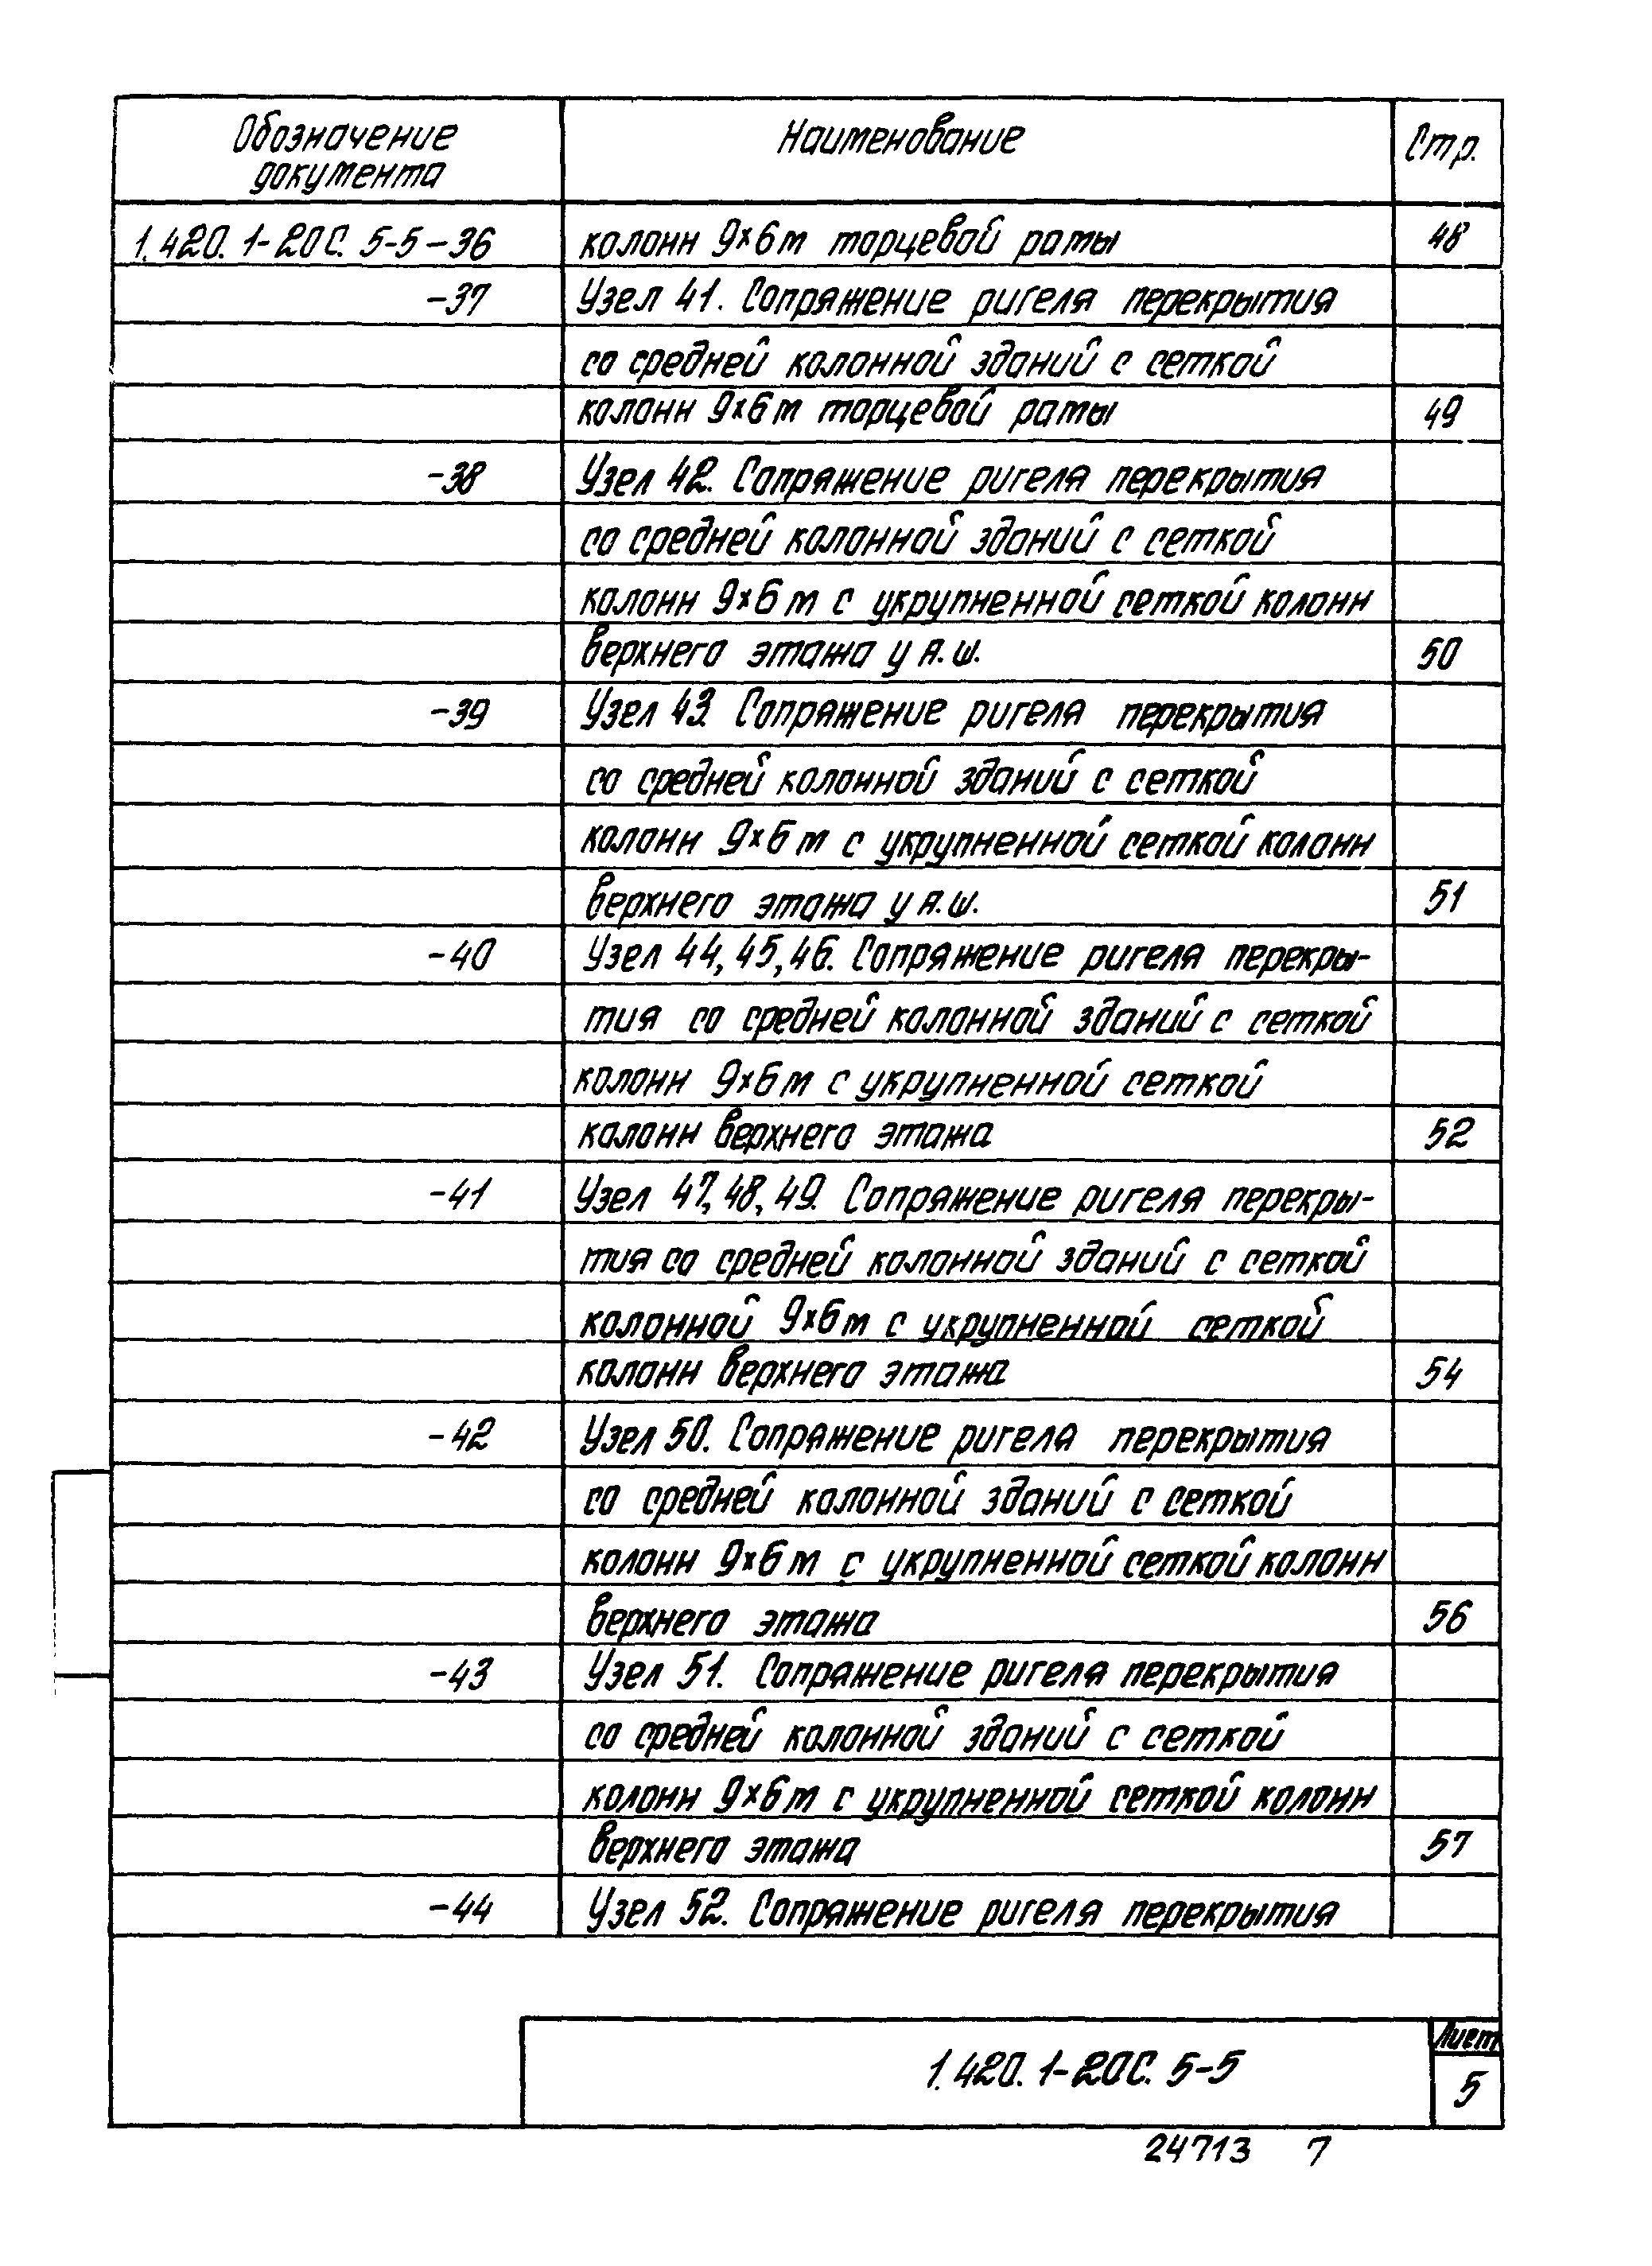 Обозначение документа Наименование Стр.
1.420.1-20С.5-5-36 колонн 9×6м торцевой рамы 48
-37 Узел 41. Сопряжение ригеля перекрытия
со средней колонной зданий с сеткой
колонн 9×6м торцевой рамы 49
-38 Узел 42. Сопряжение ригеля перекрытия
со средней колонной зданий с сеткой
колонн 9×6м с укрупненной сеткой колонн
верхнего этажа у а.ш. 50
-39 Узел 43. Сопряжение ригеля перекрытия
со средней колонной зданий с сеткой
колонн 9×6м с укрупненной сеткой колонн
верхнего этажа у а.ш. 51
-40 Узел 44, 45, 46. Сопряжение ригеля перекры-
тия со средней колонной зданий с сеткой
колонн 9×6м с укрупненной сеткой
колонн верхнего этажа 52
-41 Узел 47, 48, 49. Сопряжение ригеля перекры-
тия со средней колонной зданий с сеткой
колонной 9×6м с укрупненной сеткой
колонн верхнего этажа 54
-42 Узел 50. Сопряжение ригеля перекрытия
со средней колонной зданий с сеткой
колонн 9×6м с укрупненной сеткой колонн
верхнего этажа 56
-43 Узел 51. Сопряжение ригеля перекрытия
со средней колонной зданий с сеткой
колонн 9×6м с укрупненной сеткой колонн
верхнего этажа 57
-44 Узел 52. Сопряжение ригеля перекрытия
Лист
1.420.1-20С.5-5 5
24713 7